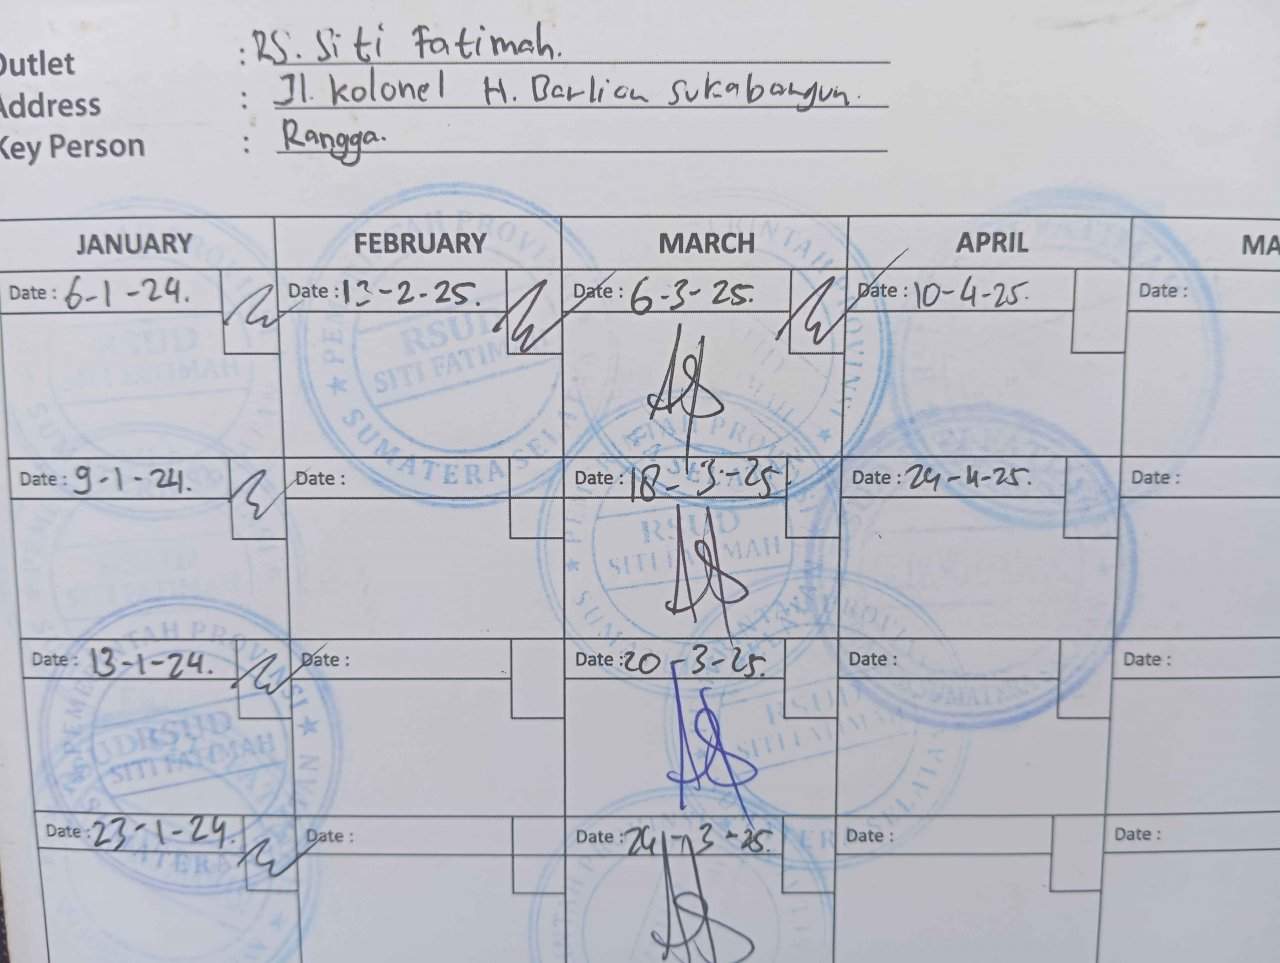 Outlet : RS. Siti Fatimah.
Address : Jl. Kolonel H. Barlian Sukabangun.
Key Person : Rangga.
JANUARY FEBRUARY MARCH APRIL MA
Date : 6-1-24. Date : 13-2-25. Date : 6-3-25. Date : 10-4-25. Date :
RSUD
SITI FATIMAH
SUMATERA SELA
Date : 9-1-24. Date : Date : 18-3-25 Date : 24-4-25. Date :
RSUD
SITI FATIMAH
Date : 13-1-24. Date : Date : 20-3-25. Date : Date :
PEMERINTAH PROVINSI
RSUD
SITI FATIMAH
RSUD
SITI FATIMAH
Date : 23-1-24. Date : Date : 24-3-25. Date : Date :